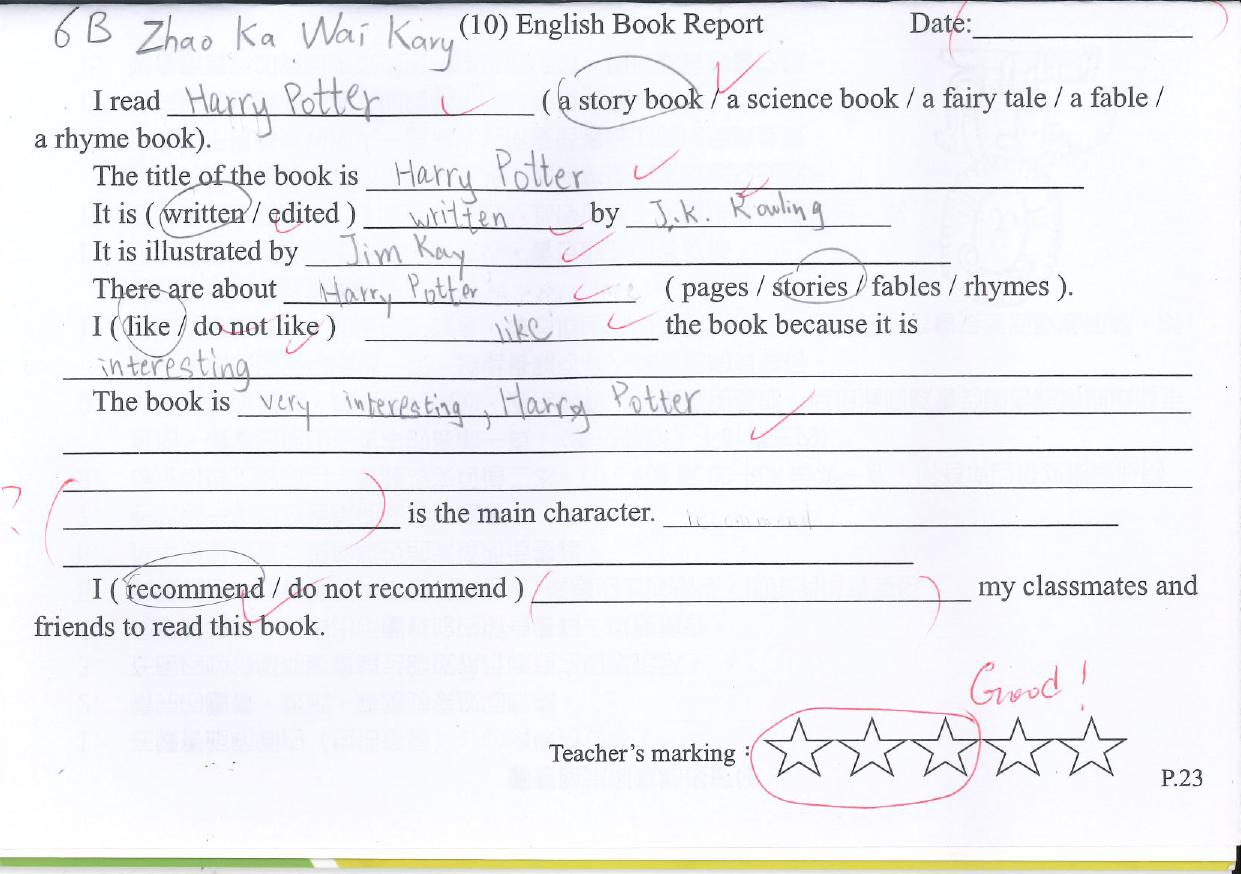 6B Zhao Ka Wai Kary (10) English Book Report Date:
I read Harry Potter ( a story book / a science book / a fairy tale / a fable /
a rhyme book).
The title of the book is Harry Potter
It is ( written / edited ) written by J.K. Rowling
It is illustrated by Jim Kay
There are about Harry Potter ( pages / stories / fables / rhymes ).
I ( like / do not like ) like the book because it is
interesting
The book is very interesting, Harry Potter
? is the main character. recommend
I ( recommend / do not recommend ) my classmates and
friends to read this book.
Good!
Teacher's marking :
P.23